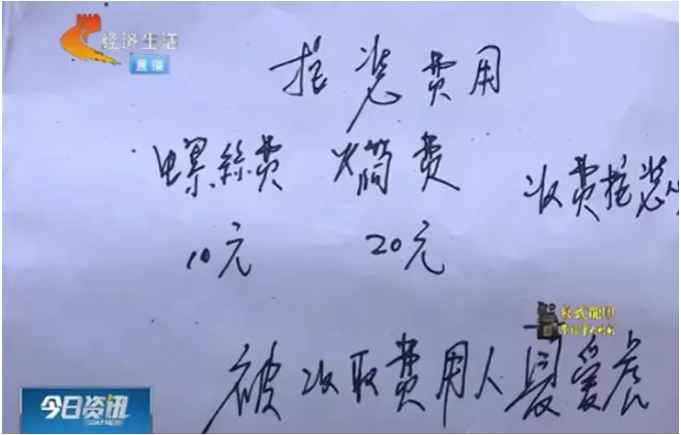 经济生活
直播
按装费用
螺丝费 烟筒费 收费按装
10元 20元
被收取费用人
今日资讯